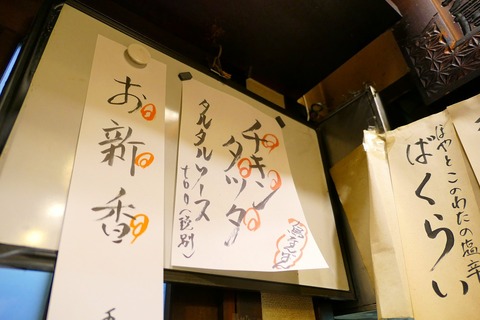 お新香
チキン
タツタ
タルタルソース
100(税別)
ほやとこのわたの塩辛
ばくらい